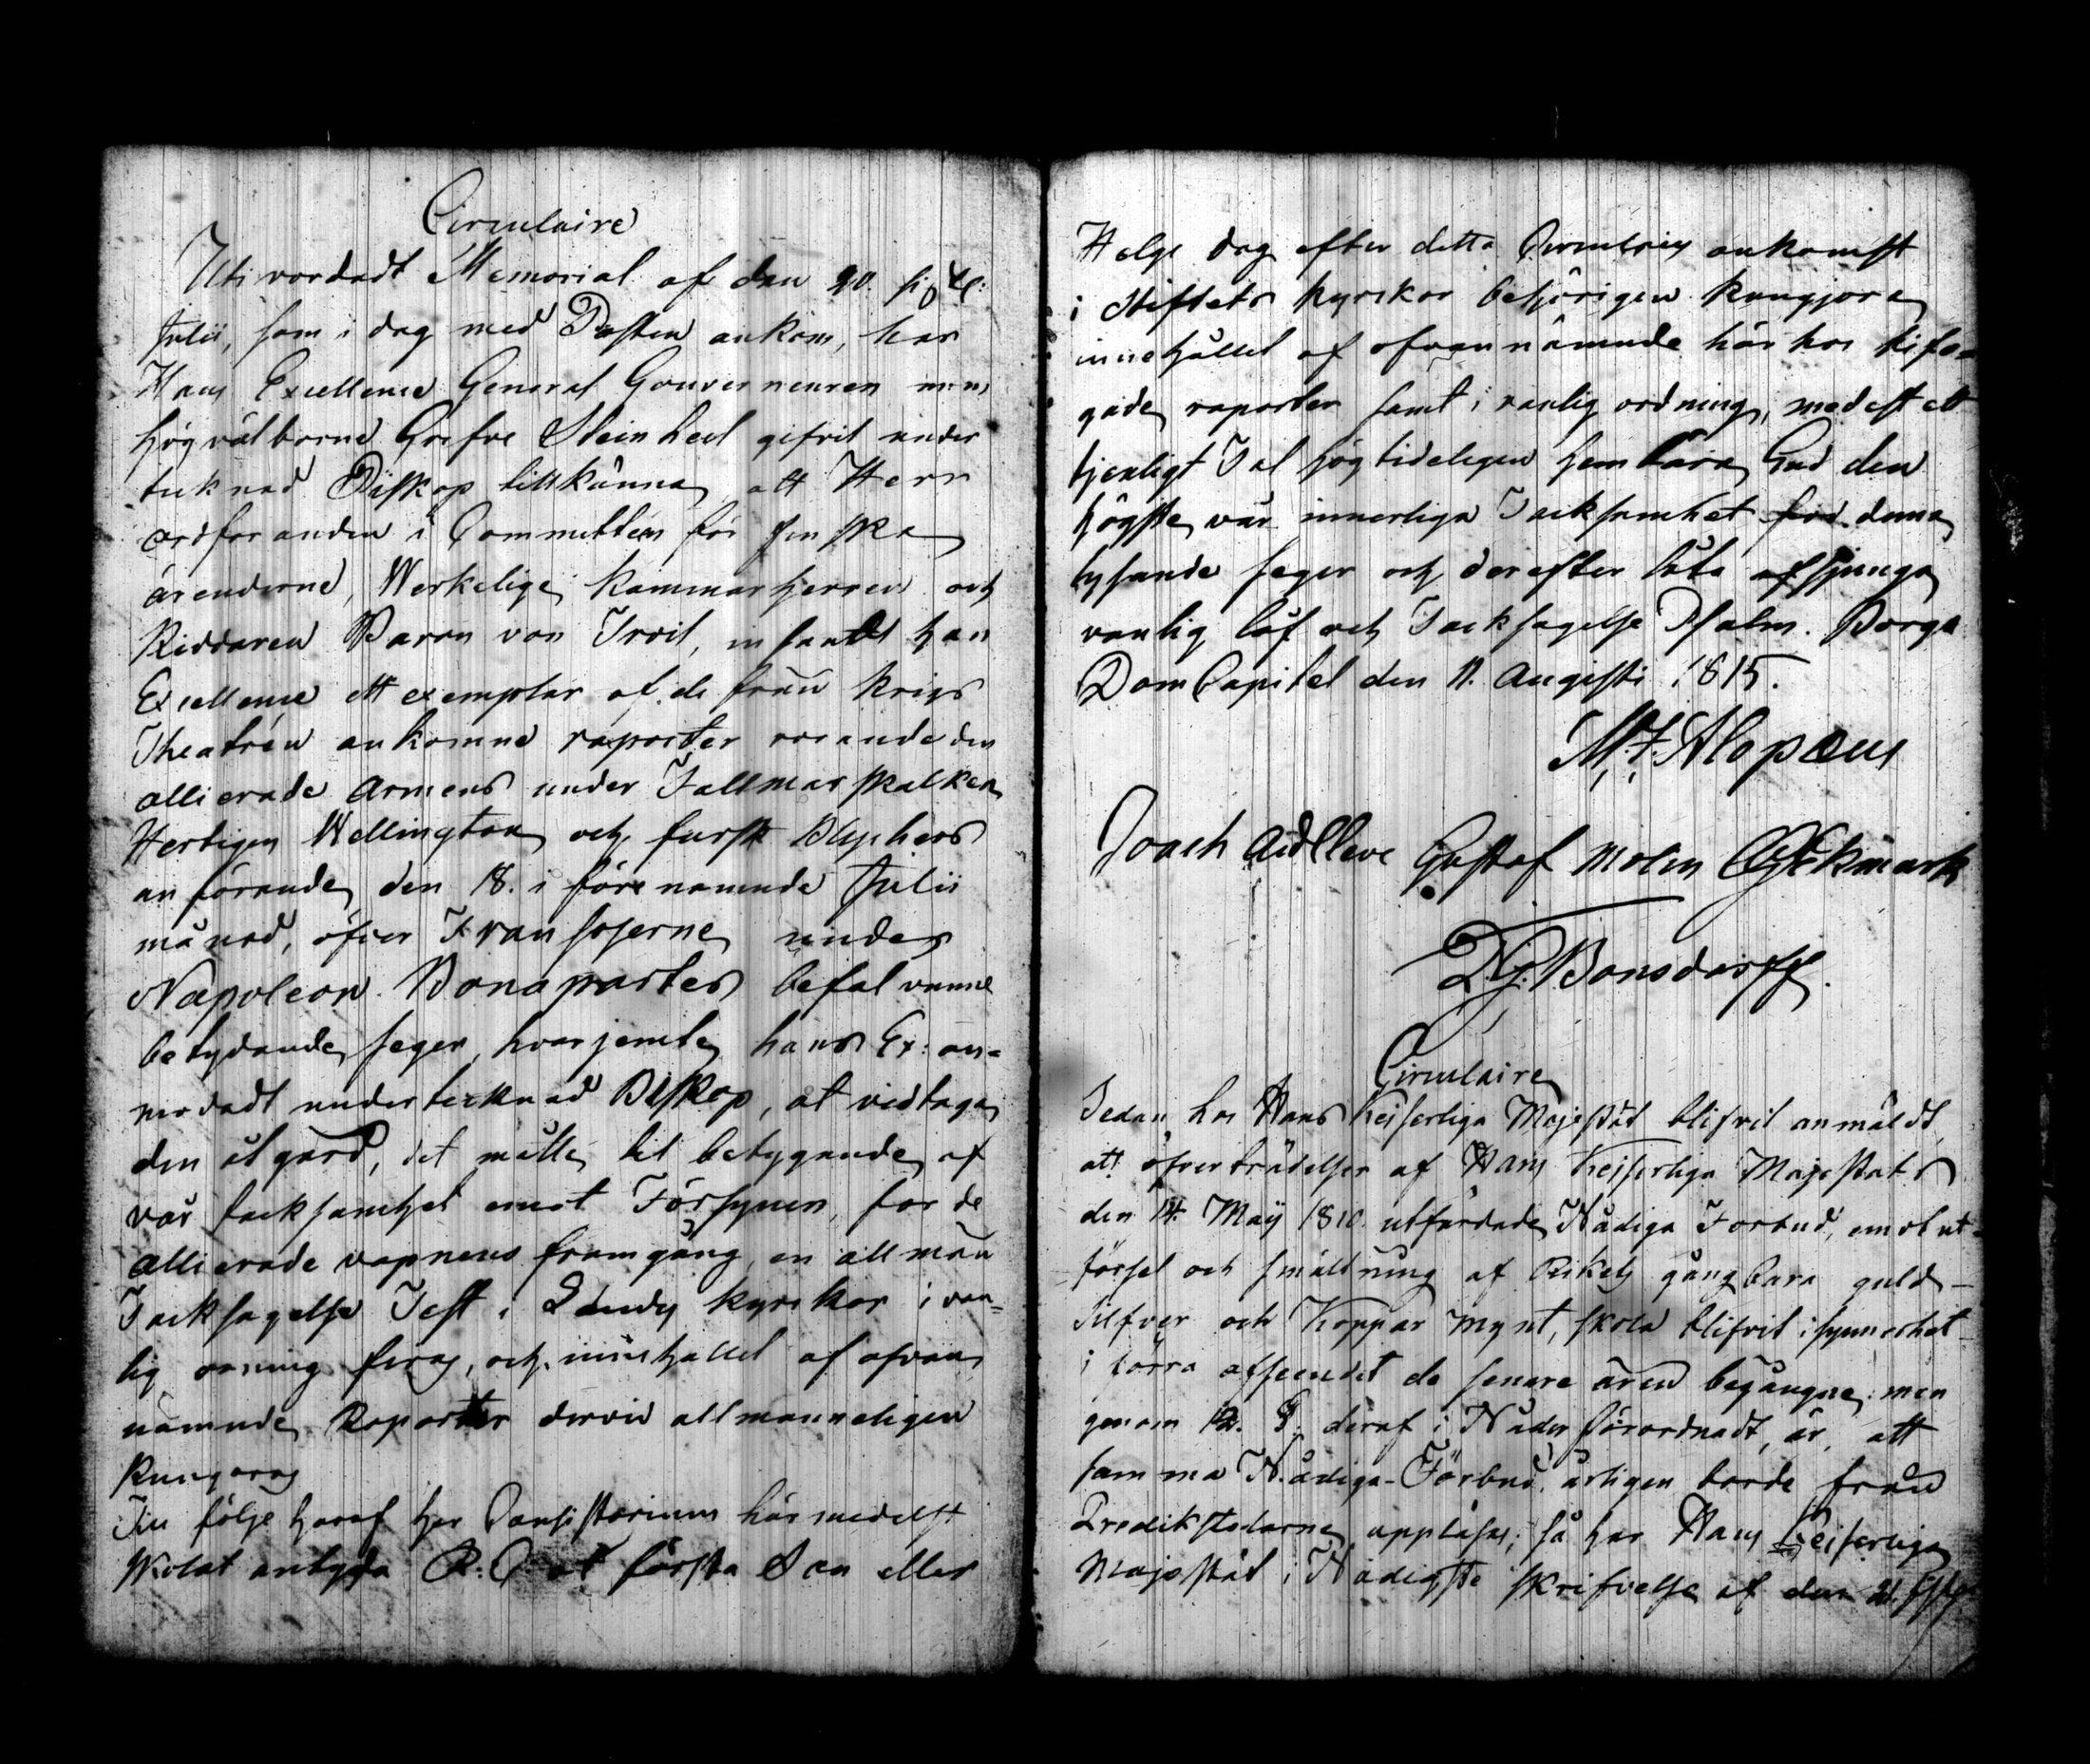 Circulaire
Uti vordadt Memorial af den 20. sistl:
Julii, som i dag med Posten ankom, har
Hans Excellence General Gouverneuren m.m.
högvälborne Grefve Steinheil gifvit under
teknad Biskop tillkänna, att Herr
ordforanden i Committéen för finska
ärenderne, Werkelige Kammarherren och
Riddaren Baron von Troil, insandt han
Excellence ett exemplar af de från krigs
Theatren ankomne raporter rorande den
allierade Armens under Faltmarskalken
Hertigen Wellington och furst Blychers
anförande, den 18. i förenamnde Julii
månad, öfver Fransoserne, under
Napoleon Bonapartes befal vunne
betydande seger, hvarjemte hans Ex: an-
modadt underteknad Biskop, at vidtaga
den åtgård, det måtte til betygande af
vår tacksamhet emot Försynen, for de
allierade vapnens framgång, en allmän
Tacksagelse Fest i Landets kyrckor i van-
lig orning firas, och innehallet af ofvan
namnde Raporter dervid allmanneligen
kungoras
Til följe haraf har Consistorium härmedelst
skolat antyda R: C at första Son eller
Helge dag efter detta Circulairs ankomst
i Stiftets kyrckor behörigen kungjora
innehållet af ofvannämnde här hos bifo-
gade raporter samt i vanlig ordning, medelst ett
tjenligt Tal högtideligen hembära Gud den
högste vår innerliga Tacksamhet for denna
lysande seger och derefter låta afsjunga
vanlig låf och Tacksagelse Psalm. Borga
DomCapitel den 11. Augusti 1815.
M. F. Alopæus
Joach Adlleve Gustaf Molin CG Ekmark
D. G. Bonsdorff.
Circulaire
Sedan hos Hans Keiserliga Majestät blifvit anmäldt,
att öfverträdelser af Hans Keiserliga Majestäts
den 14. Maij 1810. utfärdade Nådiga Forbud, emot ut-
försel och smältning af Rikets gångbara guld-
Silfver och Koppar mynt, skola blifvit i synnerhet
i större afseendet de senare åren begångne; men
genom 12. §. deraf i Nåder förordnadt, är, att
samma Nådiga Förbud årligen borde från
Predikstolarne uppläsas; så har Hans Keiserliga
Majestät i Nådigste skrifvelse af den 21. sistl: